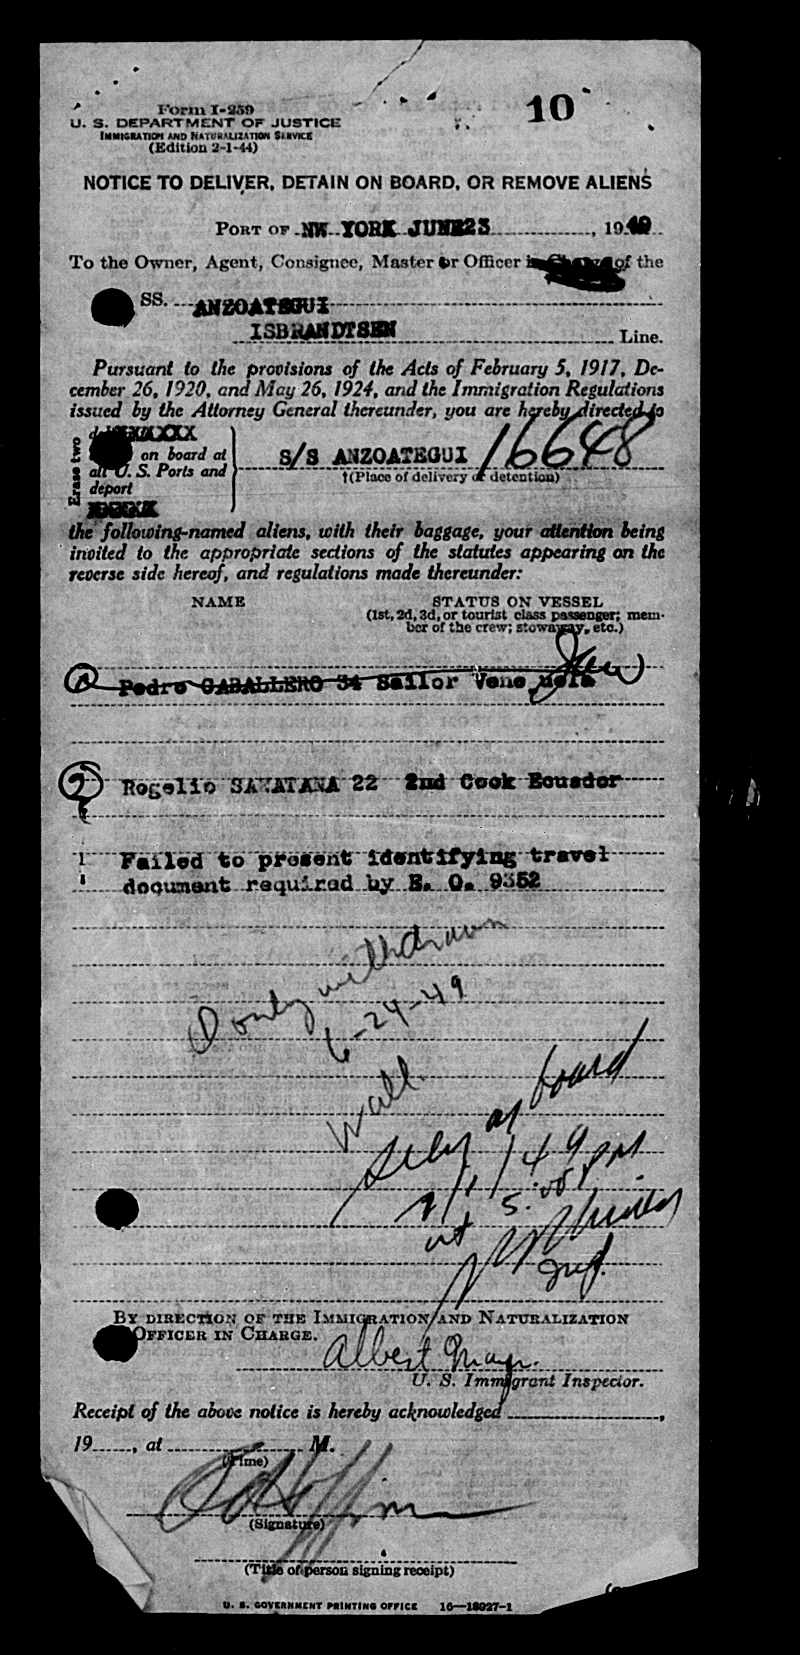 Form I-259
10
U. S. DEPARTMENT OF JUSTICE
IMMIGRATION AND NATURALIZATION SERVICE
(Edition 2-1-44)
NOTICE TO DELIVER, DETAIN ON BOARD, OR REMOVE ALIENS
PORT OF NW YORK JUNE23, 1949
To the Owner, Agent, Consignee, Master or Officer in Charge of the
SS. ANZOATEGUI
ISBRANDTSEN Line.
Pursuant to the provisions of the Acts of February 5, 1917, De-
cember 26, 1920, and May 26, 1924, and the Immigration Regulations
issued by the Attorney General thereunder, you are hereby directed to
Erase two
on board at
all U. S. Ports and
deport
S/S ANZOATEGUI 16648
†(Place of delivery or detention)
the following-named aliens, with their baggage, your attention being
invited to the appropriate sections of the statutes appearing on the
reverse side hereof, and regulations made thereunder:
NAME
STATUS ON VESSEL
(1st, 2d, 3d, or tourist class passenger; mem-
ber of the crew; stowaway, etc.)
1 Pedro CABALLERO 34 Sailor Venezuela
2 Rogelio 22 2nd Cook Ecuador
Failed to present identifying travel
document required by E. O. 9352
1 only withdrawn
6-24-49
Wall
board
/49
at 5:00 PM
BY DIRECTION OF THE IMMIGRATION AND NATURALIZATION
OFFICER IN CHARGE.
Albert
U. S. Immigrant Inspector.
Receipt of the above notice is hereby acknowledged ,
19 , at M.
(Time)
(Signature)
(Title of person signing receipt)
U. S. GOVERNMENT PRINTING OFFICE 16—18927-1